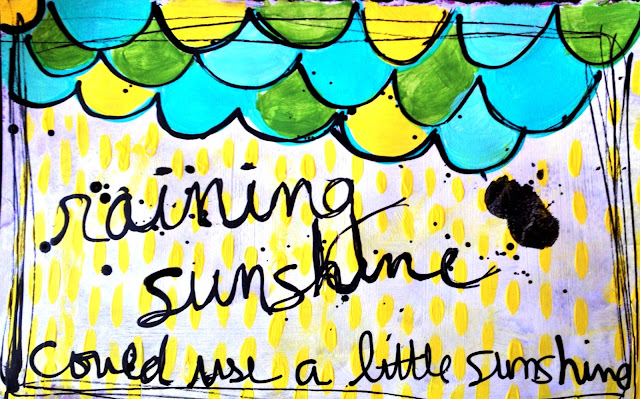 raining
sunshine
could use a little sunshine